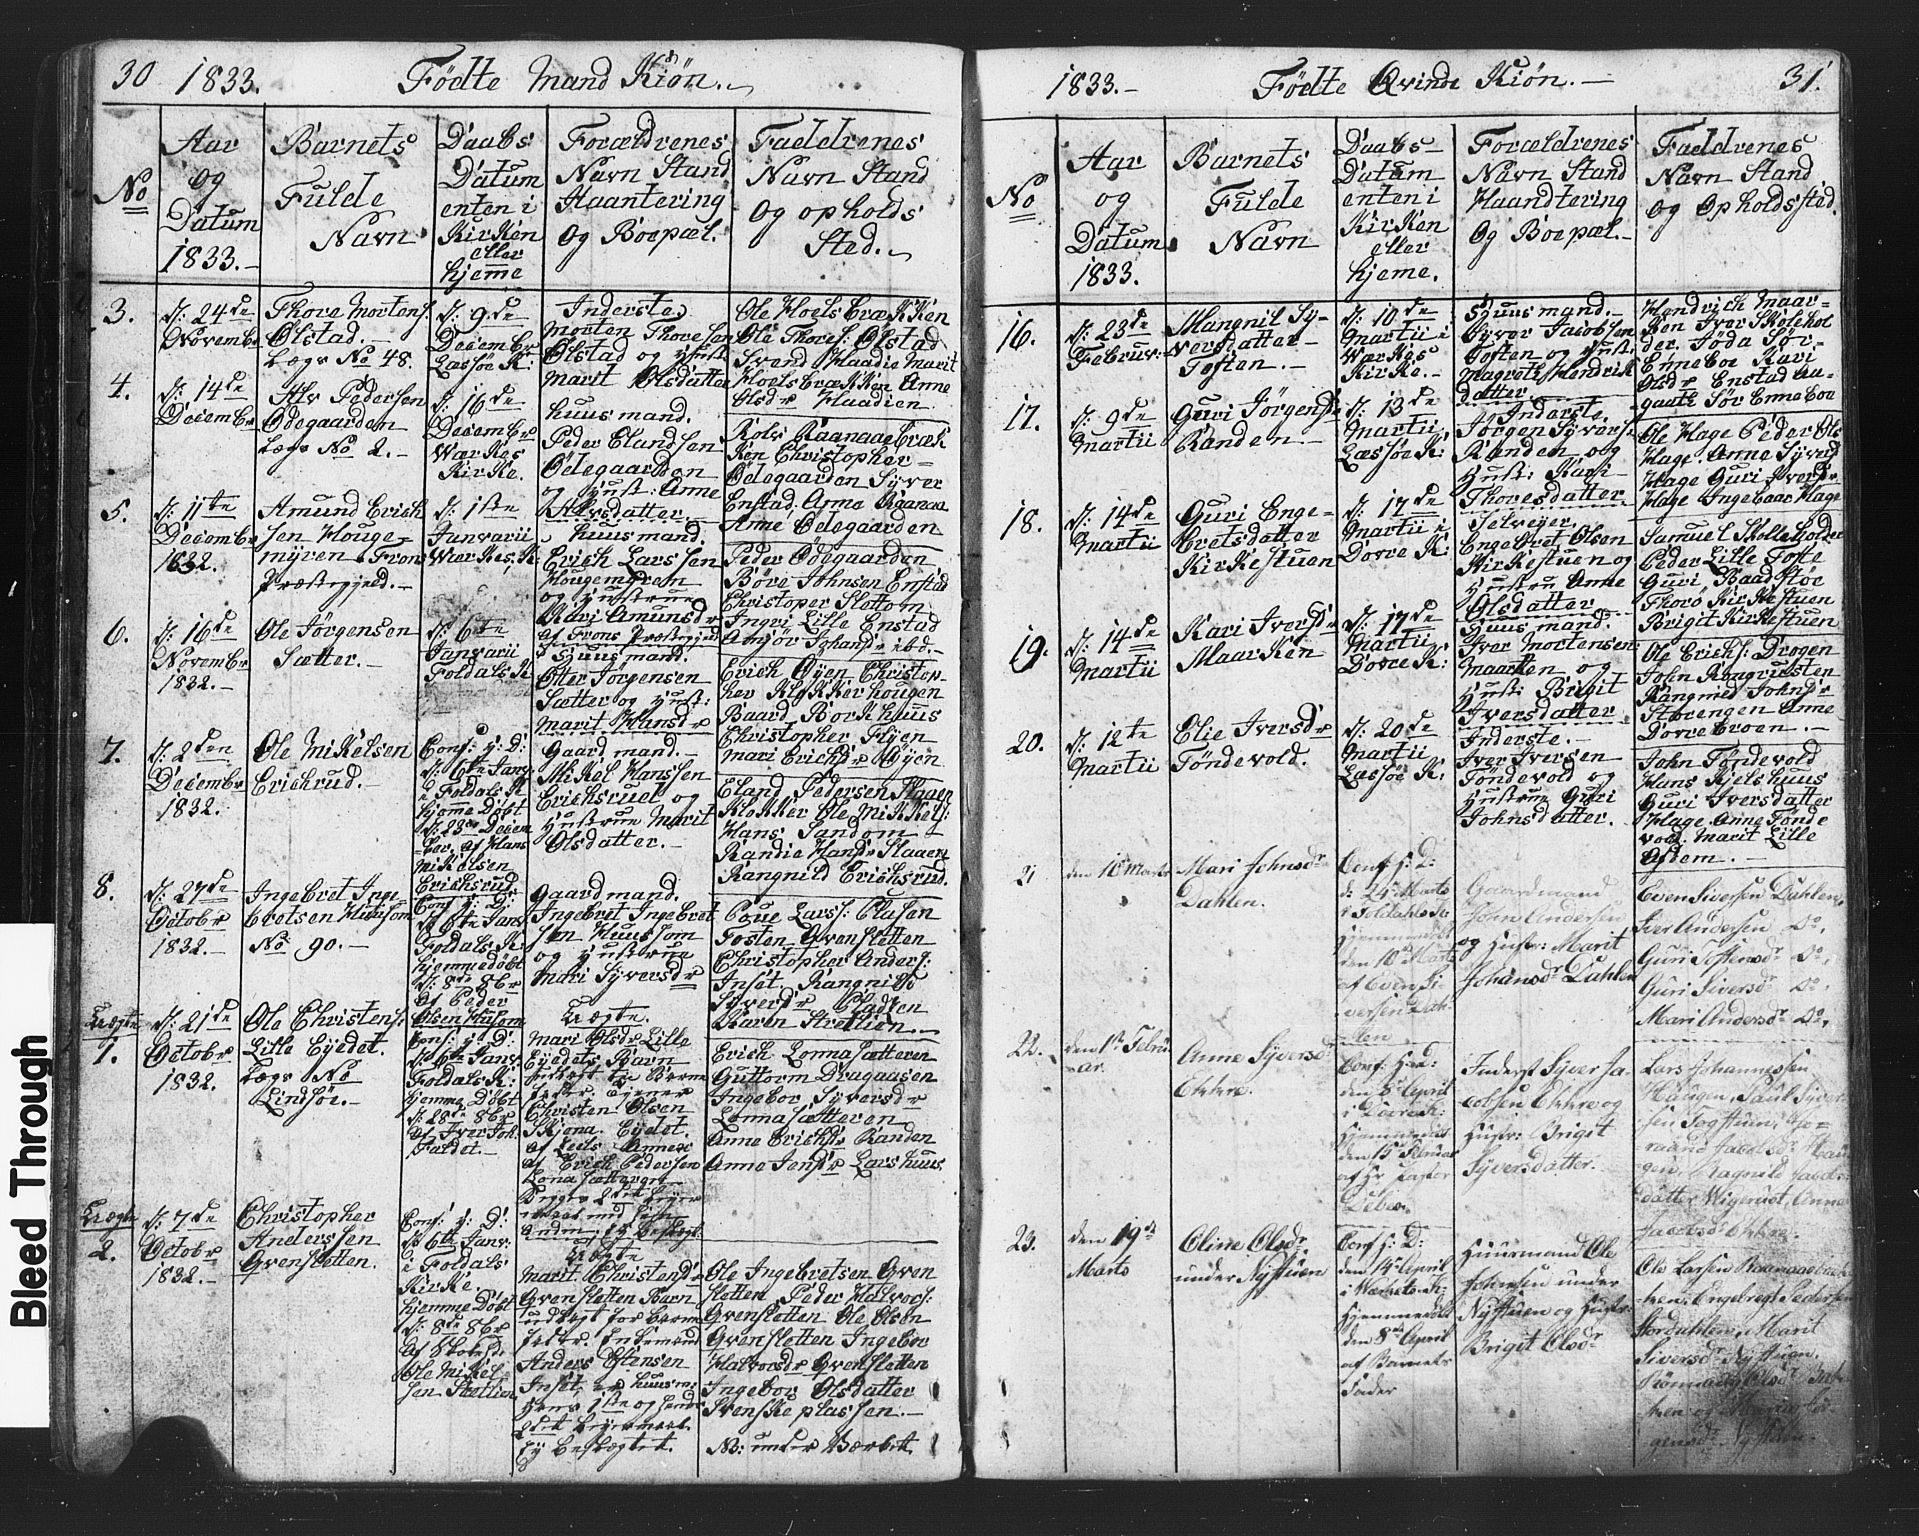 30 1833. Fødte Mand Kiøn.
No
Aar
og
Datum
1833.
Barnets
Fulde
Navn
Daabs
Datum
enten i
Kirken
eller
hjeme
Forældrenes
Navn Stand
Haantering
Og Boepæl.
Faddrenes
Navn Stand
Og opholds
Sted.
3.
d: 24de
Novembr
Thore Mortens:
Ølstad.
Lægs No 48.
d: 9de
Decembr
Læsøe K:
Inderste
Morten Thoresen
Ølstad og Hust
Marit Olsdatter
Ole Hoelsbrækken
Ole Thores: Ølstad
Svend Haadie Marit
Hoelsbrækken Anne
Olsdr Haadien
4.
d: 14de
Decembr
Alv Pedersen
Ødegaarden
Lægs No 2.
d: 16de
Decembr
Værkes
Kirke.
huusmand.
Peder Elandsen
Ødegaarden
og Hust: Anne
Alvsdatter.
Rolv Raanaabræk
ken Christopher
Ødegaarden Syver
Enstad Anne Raanaa
Anne Ødegaarden
5.
d: 11te
Decembr
1832.
Amund Erich
sen Houge
myren Fron
Præstegjeld.
d: 1ste
Janvarii
Værkes K:
huusmand.
Erich Larssen
Hougemyren
og Hustrue
Kari Amunsdr
af Frons Præstegjeld
Peder Ødegaarden
Børe Johnsen Enstad
Christoper Slottom
Ingri Lille Enstad
Anjør Johansdr ibd.
6.
d: 16de
Novembr
1832.
Ole Jørgensen
Sætter.
d: 6te
Janvarii
Foldals K
Huusmand.
Otter Jørgensen
Sætter og Hust:
Marit Hansdr
Erich Øyen Christop
her Klokkerhougen
Baard Borkhuus
Christopher Flyen
Mari Erichsdr Øyen
7.
d: 2den
Decembr
1832.
Ole Mikelsen
Erichrud.
Conf: y: D:
d: 6te Janv
i Foldals K
hjemme Døbt
d: 23de Decem
ber. af Hans
Mikelsen
Erichsrud
Gaardmand.
Mikel Hanssen
Erichsrud og
Hustrue Marit
Olsdatter.
Eland Pedersen Plaaen
Klokker Ole Mikkels:
Hans Sandom
Randie Hansdr Slaaen
Rangnild Erichsrud.
8.
d: 27de
Octobr
1832.
Ingebret Inge
bretsen Huusom
No 90.
Conf: y: D:
d 6te Janv
Foldals K:
hjemmedøbt
d: 8de 8br
af Peder
Olsen Husom
gaardmand.
Ingebret Ingebret
sen Huussom
og Hustrue
Mari Syversdr
Pove Larss: Plasen
Tosten Qvensletten
Christopher Anders:
Inset Rangnild
Syversdr Pladsen
Karen Strellien.
Uægte
1.
d: 21de
Octobr
1832.
Ole Christens:
Lille Eyedet.
Lægs No
Lindsøe.
Conf: y: D:
d 6te Janv
Foldals K:
hjemme Døbt
d: 28de 8br
af Iver Joh.
Faldet.
Uægte.
Mari Olsdr Lille
Eyedets Barn
udlagt til Barne
fader. Egener
Christen Olsen
Skjona. Eyedet
af Lells Annexe
af Erich Pedersen
Lona sætteren
Erich Lonnasætteren
Guttorm Dragaasen
Ingebor Syversdr
Lonnasætteren
Anne Erichsdr Randen
Anne Jensdr Larshuus
Uægte
2.
d: 7de
Octobr
1832.
Christopher
Anderssen
Qvensletten.
Conf: y: D:
d 6te Janv:
i Foldals
Kirke.
hjemme Døbt
d: 8de 8br
af Skoleh:
Ole Mikkel
sen Strellien
Uægte
Marit Christensdr
Qvensletten Barn
udlagt for Barne
fader. Enkemand
Anders Estensen
Inset, er huusm:
hans 1ste og hendes
2det Leyermaal
Ey besløgtet.
Ole Ingebretsen Qven
sletten Peder Halvors:
Qvensletten Ole Olsen
Qvensletten Ingebor
Halvorsdr Qvensletten
Ingebor Olsdatter
Svenskeplassen.
NB: under Værket
1833. Fødte Qvinde Kiøn. 31.
No
Aar
og
Datum
1833.
Barnets
Fulde
Navn
Daabs
Datum
enten i
Kirken
eller
hjeme.
Forældrenes
Navn Stand
Haandtering
Og Boepæl.
Faddrenes
Navn Stand
og Opholdssted.
16.
d: 23de
Februv:
Mangnil Sy-
versdatter
Toften.
d: 10de
Martii i
Værkes
Kirke.
Huusmand.
Syver Jacobsen
Toften og Hust:
Magrete Hendrik
datter
Hendrich Maar-
ken Iver Skolehol
der. Joda Sør-
Enneboe Kari
Olsdr Enstad Aa-
gaate Sør Enneboe
17.
d: 9de
Martii
Guri Jørgensdr
Randen
d: 13de
Martii
Læsøe K:
Inderste,
Jørgen Syvers:
Randen og
Hust: Kari
Thoresdatter
Ole Hage Peder Ols
Hage. Anne Syversdr
Hage Guri Iversdr
Hage Ingebaar Hage
18.
d: 14de
Martii
Guri Enge-
bretsdatter
Kirkestuen
d: 17de
Martii i
Dovre K:
Selvejer.
Engebret Olsen
Kirkestuen og
Hustrue Anne
Olsdatter
Samuel Skolleholder
Peder Lille Tofte
Guri Baadstøe
Thorø Kirkestuen
Brigit Kirkestuen
19.
d: 14de
Martii
Kari Iversdr
Maarken
d: 17de
Martii
Dovre K:
Huusmand.
Iver Mortensen
Maarken og
Hust: Brigit
Iversdatter
Ole Erichs: Drogen
John Rongvusten
Rangnil Johnsdr
Storengen Anne
Dovrebroen.
20.
d: 12te
Martii
Olie Iversdr
Tøndevold.
d: 20de
Martii
Læsøe K:
Inderste.
Iver Iversen
Tøndevold og
Hustrue Guri
Johnsdatter.
John Tøndevold
Hans Kjelshuus
Guri Iversdatter
Hage. Anne Tønde
vold. Marit Lille
Asdem.
21
den 10 Marts
Mari Johnsdr
Dahlen.
Conf: h: D:
d: 24de Marts
i Foldahls K:
hjemmedøbt
den 10de Marts
af Even Si-
versen Dah-
len
Gaardmand
John Andersen
og Hustr: Marit
Johansdr Dahlen
Even Siversen Dahlen,
Iver Andersen Do.
Guri Toftensdr Do,
Guri Siversdr Do,
Mari Andersdr Do,
22.
den 1ste Febru-
ar.
Anne Syversdr
Ekkre.
Conf: h: D:
den 8de April
i Dovre K:
hjemmedøbt
den 15 Februar
af Hr Pastor
Debes.
Inderst Syver Ja-
cobsen Ekkre og
Hustr: Brigit
Syversdatter.
Lars Johannessen
Haugen, Paul Syver-
sen Togstuen,
Jacobsdr Hau-
gen, Ragnild Jacobs-
datter Wigerust, Anne
Jacobsdr Ekkre.
23.
den 19de
Marts
Oline Olsdr
under Nystuen
Conf: h: D:
den 14de April
i Værkets K:
hjemmedøbt
den 8de April
af Barnets
Fader
Huusmand Ole
Johnsen under
Nystuen og Hustr:
Brigit Olsdr
Ole Larsen Raanaabræk-
ken, Engebregt Pedersen
Stordahlen, Marit
Siversdr Nystuen,